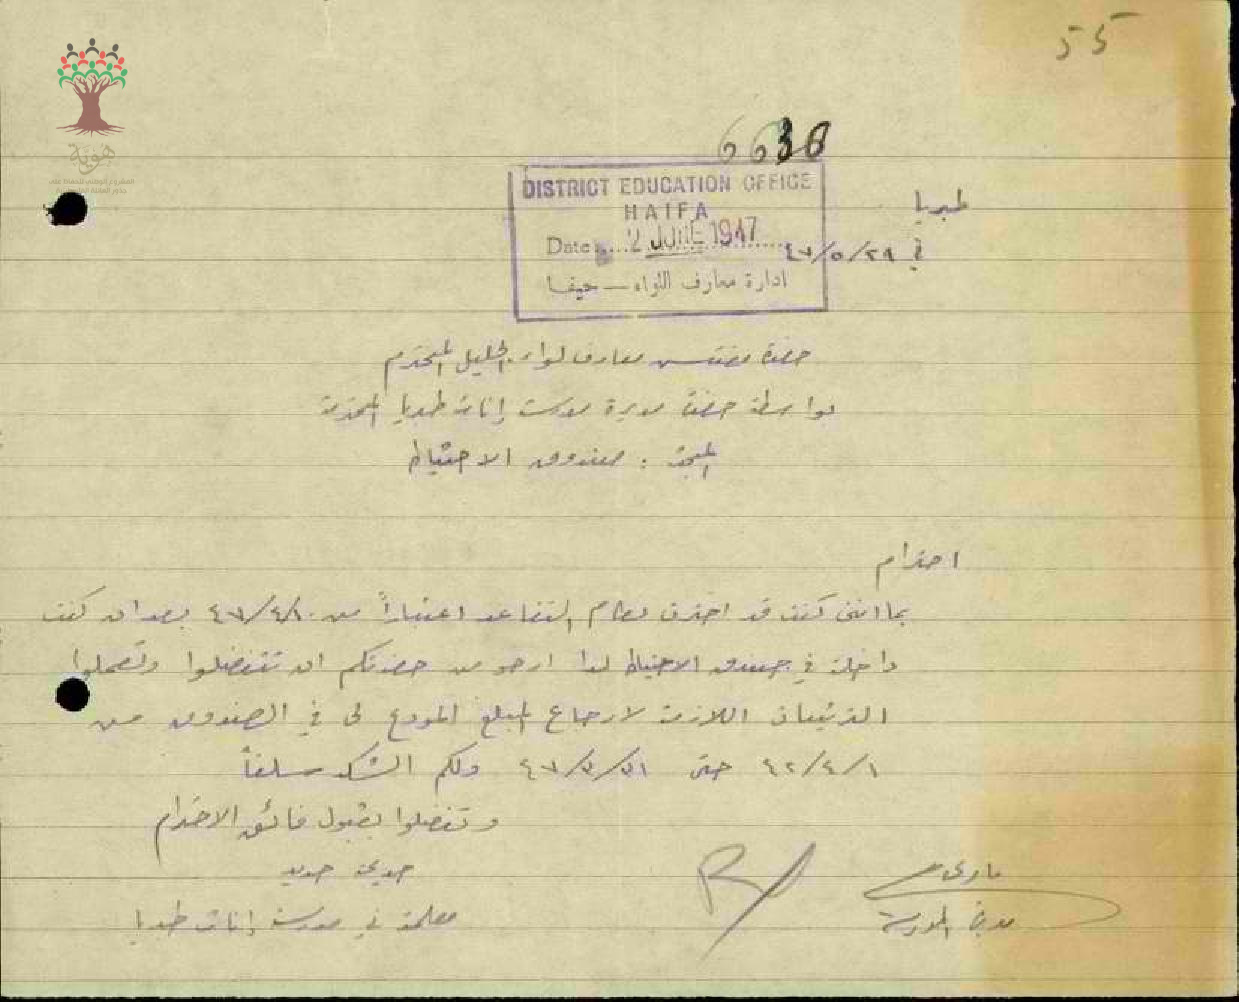 55
6638
DISTRICT EDUCATION OFFICE
HAIFA
Date 2 JUNE 1947
ادارة معارف اللواء - حيفا
طبريا
في ٢٩/٥/٤٧
هوية
حضرة مفتش معارف لواء الجليل المحترم
بواسطة حضرة مديرة مدرسة إناث طبريا المحترمة
المبحث : صندوق الاحتياط
احترام
بما انني كنت قد اخترت نظام التقاعد اعتباراً من ٤٧/٤/١ بعد ان كنت
داخلة في صندوق الاحتياط لذا ارجو من حضرتكم ان تتفضلوا وتعملوا
الترتيبات اللازمة لارجاع المبلغ المودع لي في الصندوق من
٤٢/٤/١ حتى ٤٧/٣/٣١ ولكم الشكر سلفاً
وتفضلوا بقبول فائق الاحترام
معلمة في مدرسة إناث طبريا
ماري
مديرة المدرسة